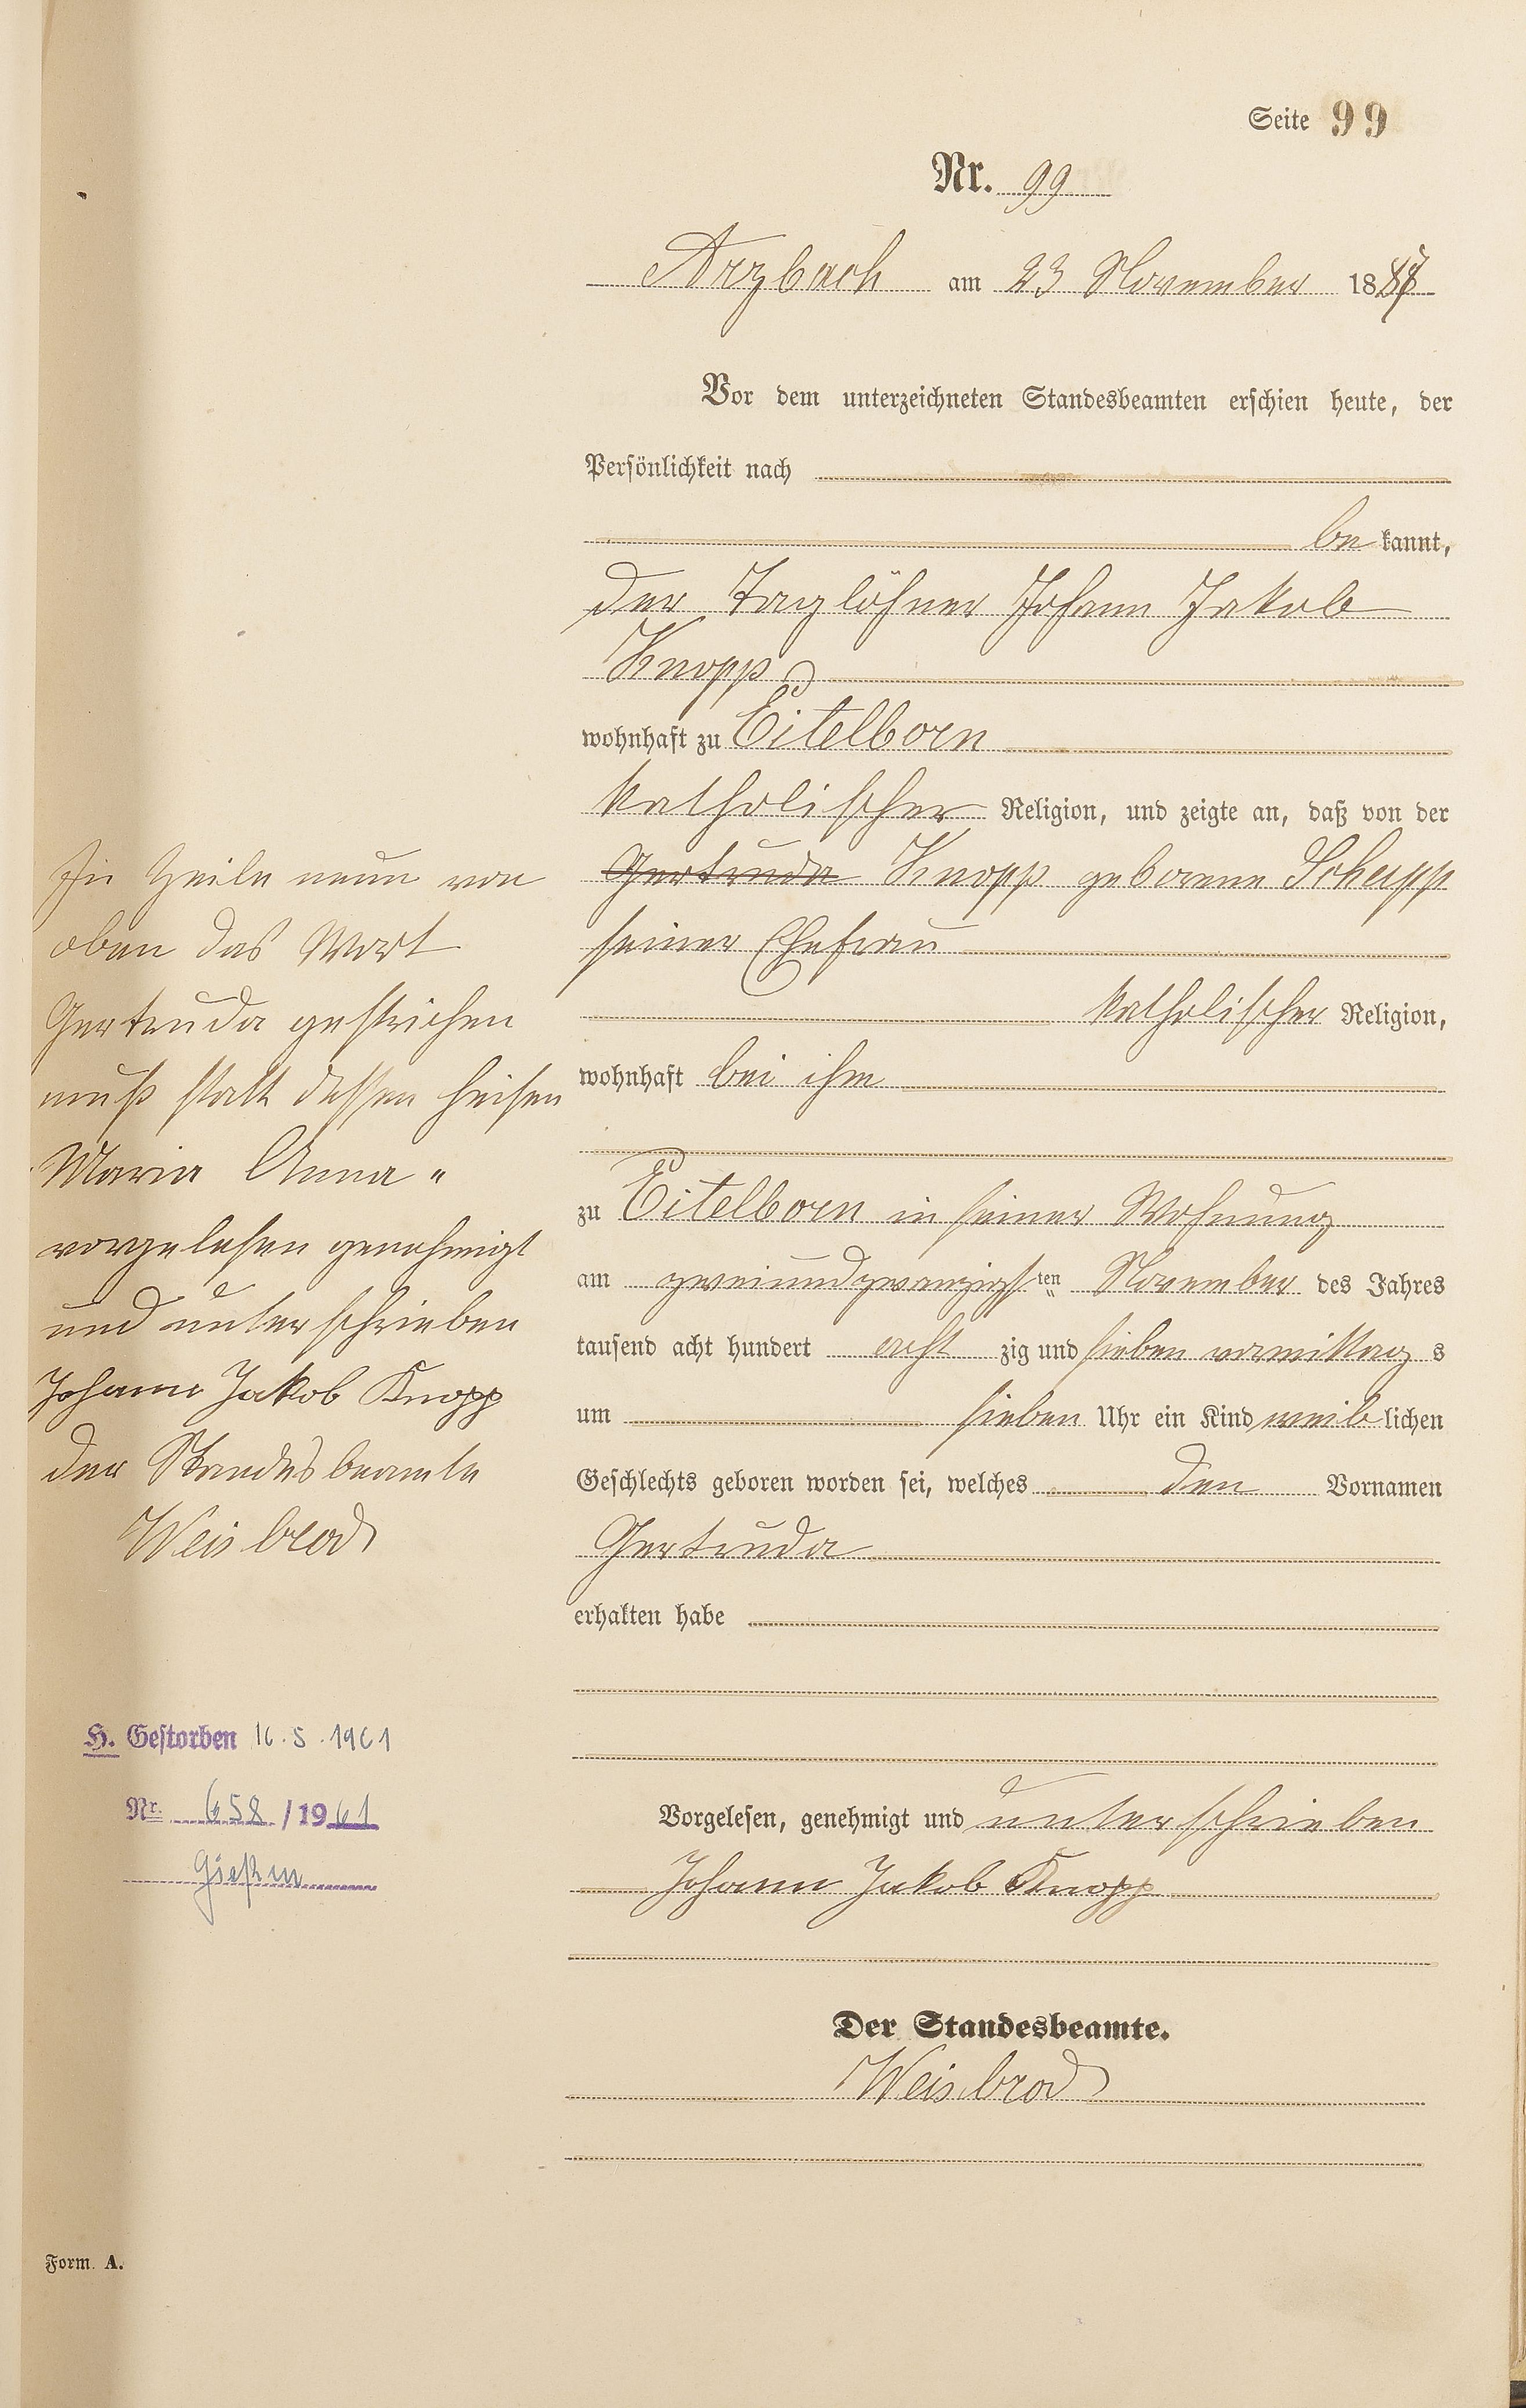 Seite 99
Nr. 99
Arzbach am 23 November 1887
Vor dem unterzeichneten Standesbeamten erschien heute, der
Persönlichkeit nach
be kannt,
der Taglöhner Johann Jakob
Knopp
wohnhaft zu Eitelborn
katholischer Religion, und zeigte an, daß von der
Gertruda Knopp geborene Schupp
seiner Ehefrau
katholischer Religion,
wohnhaft bei ihm
zu Eitelborn in seiner Wohnung
am zweiundzwanzigsten November des Jahres
tausend acht hundert acht zig und sieben vormittag s
um sieben Uhr ein Kind weib lichen
Geschlechts geboren worden sei, welches den Vornamen
Gertruda
erhalten habe
Vorgelesen, genehmigt und unterschrieben
Johann Jakob Knopp
Der Standesbeamte.
Weisbrod
In Zeile neun von
oben das Wort
Gertruda gestrichen
muß statt dessen heisen
Maria Anna "
vorgelesen genehmigt
und unterschrieben
Johann Jakob Knopp
der Standesbeamte
Weisbrod
H. Gestorben 16.5.1961
Nr. 658 / 1961
Gießen
Form. A.